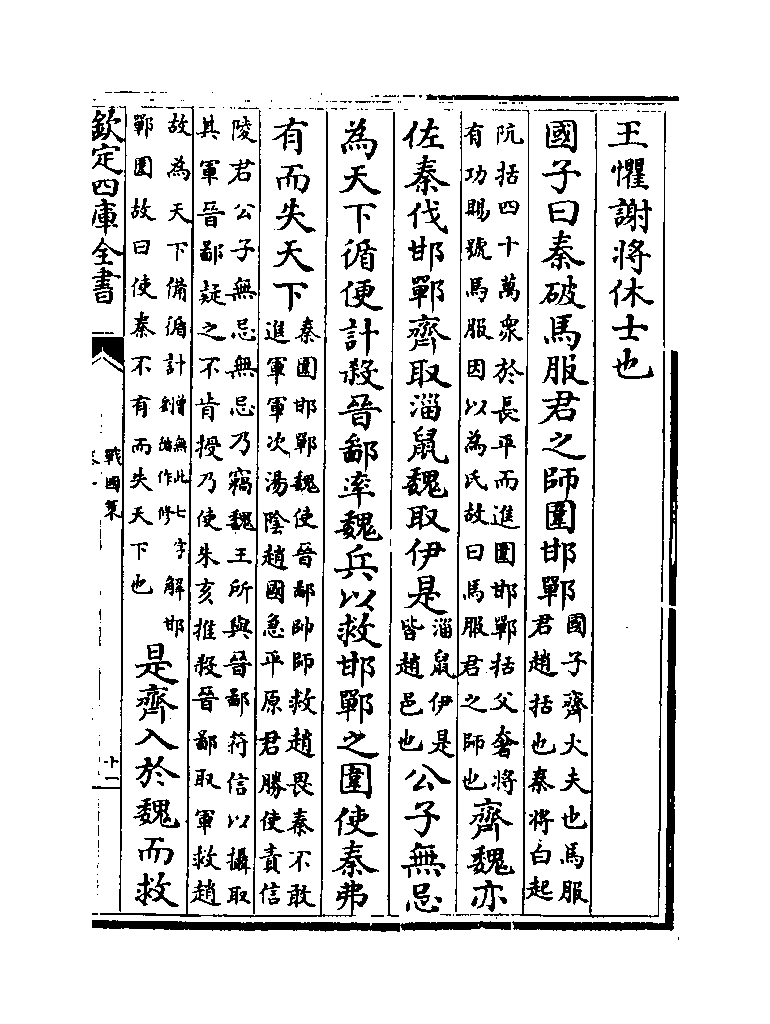 王懼謝將休士也
國子曰秦破馬服君之師圍邯鄲
國子齊大夫也馬服
君趙括也秦將白起
阬括四十萬衆於長平而進圍邯鄲括父奢將
有功賜號馬服因以為氏故曰馬服君之師也
齊魏亦
佐秦伐邯鄲齊取淄鼠魏取伊是
淄鼠伊是
皆趙邑也
公子無忌
為天下循便計殺晉鄙率魏兵以救邯鄲之圍使秦弗
有而失天下
秦圍邯鄲魏使晉鄙帥師救趙畏秦不敢
進軍軍次湯陰趙國急平原君勝使責信
陵君公子無忌無忌乃竊魏王所與晉鄙符信以攝取
其軍晉鄙疑之不肯授乃使朱亥推殺晉鄙取軍救趙
故為天下備循計
曾無此七字
劉循作修
解邯
鄲圍故曰使秦不有而失天下也
是齊入於魏而救
欽定四庫全書
戰國策
十二